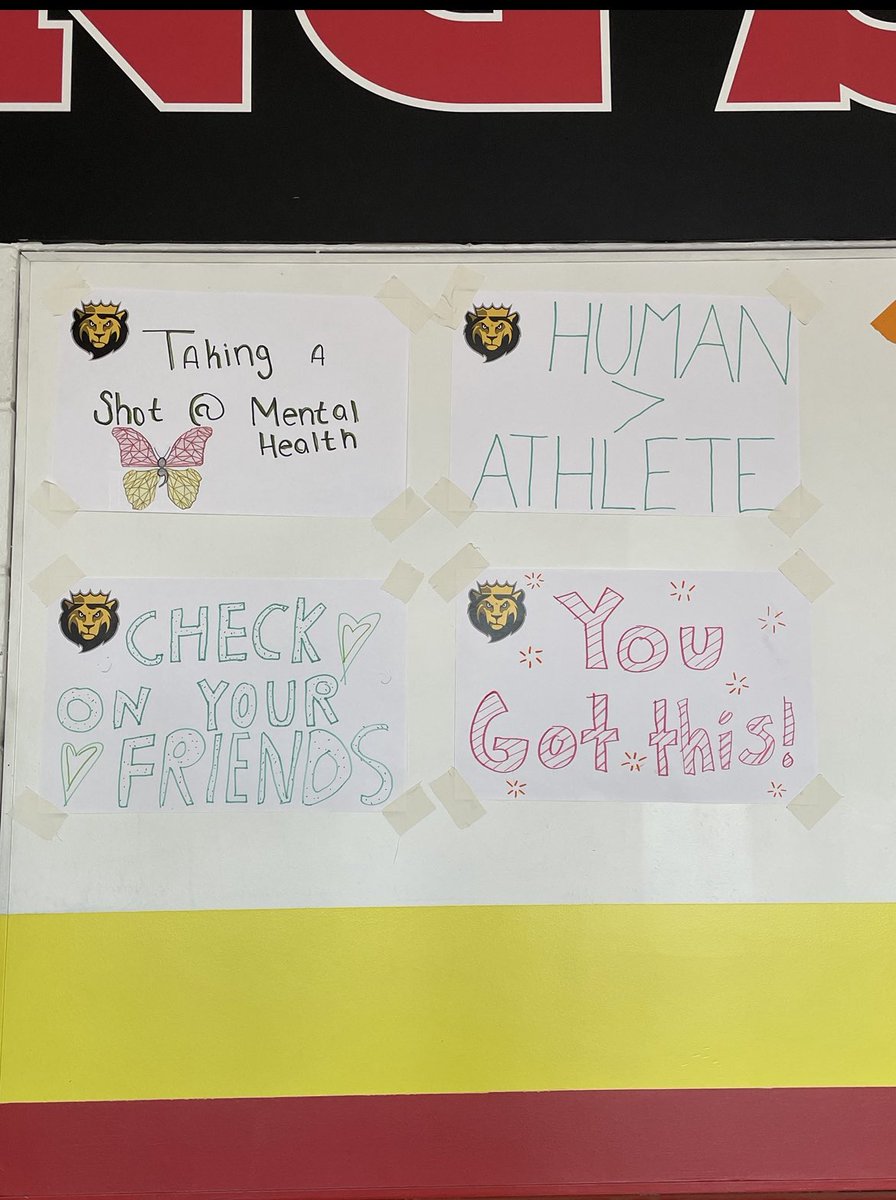 Taking A
Shot @ Mental
Health
HUMAN
>
ATHLETE
CHECK
ON YOUR
FRIENDS
You
Got this!